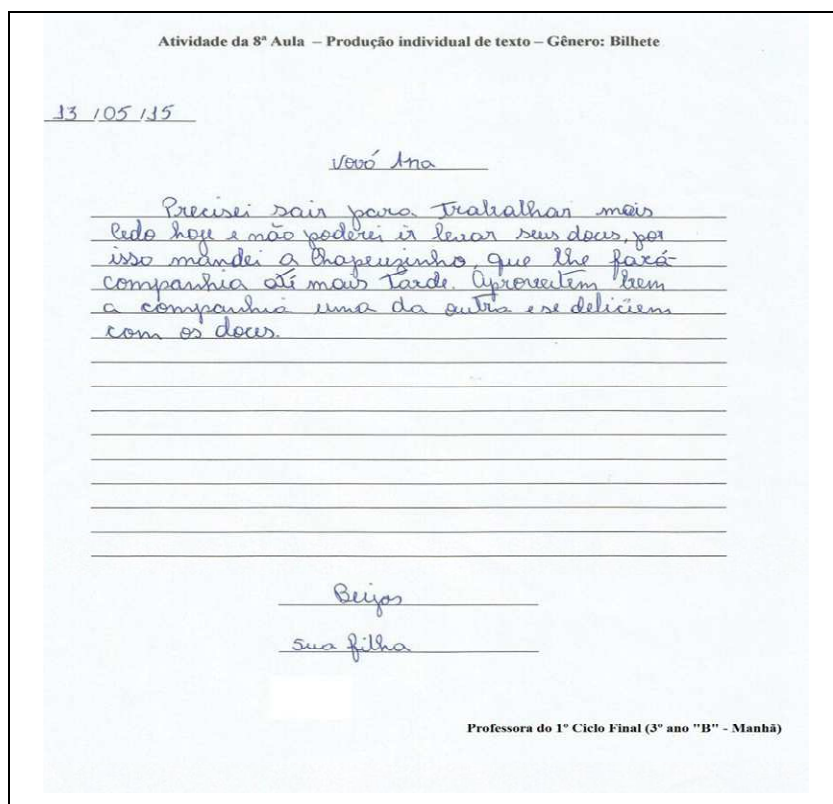 Atividade da 8ª Aula – Produção individual de texto – Gênero: Bilhete
13 / 05 / 15
Vovó Ana
Precisei sair para trabalhar mais
cedo hoje e não poderei ir levar seus doces, por
isso mandei a Chapeuzinho, que lhe fará
companhia até mais tarde. Aproveitem bem
a companhia uma da outra e se deliciem
com os doces.
Beijos
sua filha
Professora do 1º Ciclo Final (3º ano "B" - Manhã)